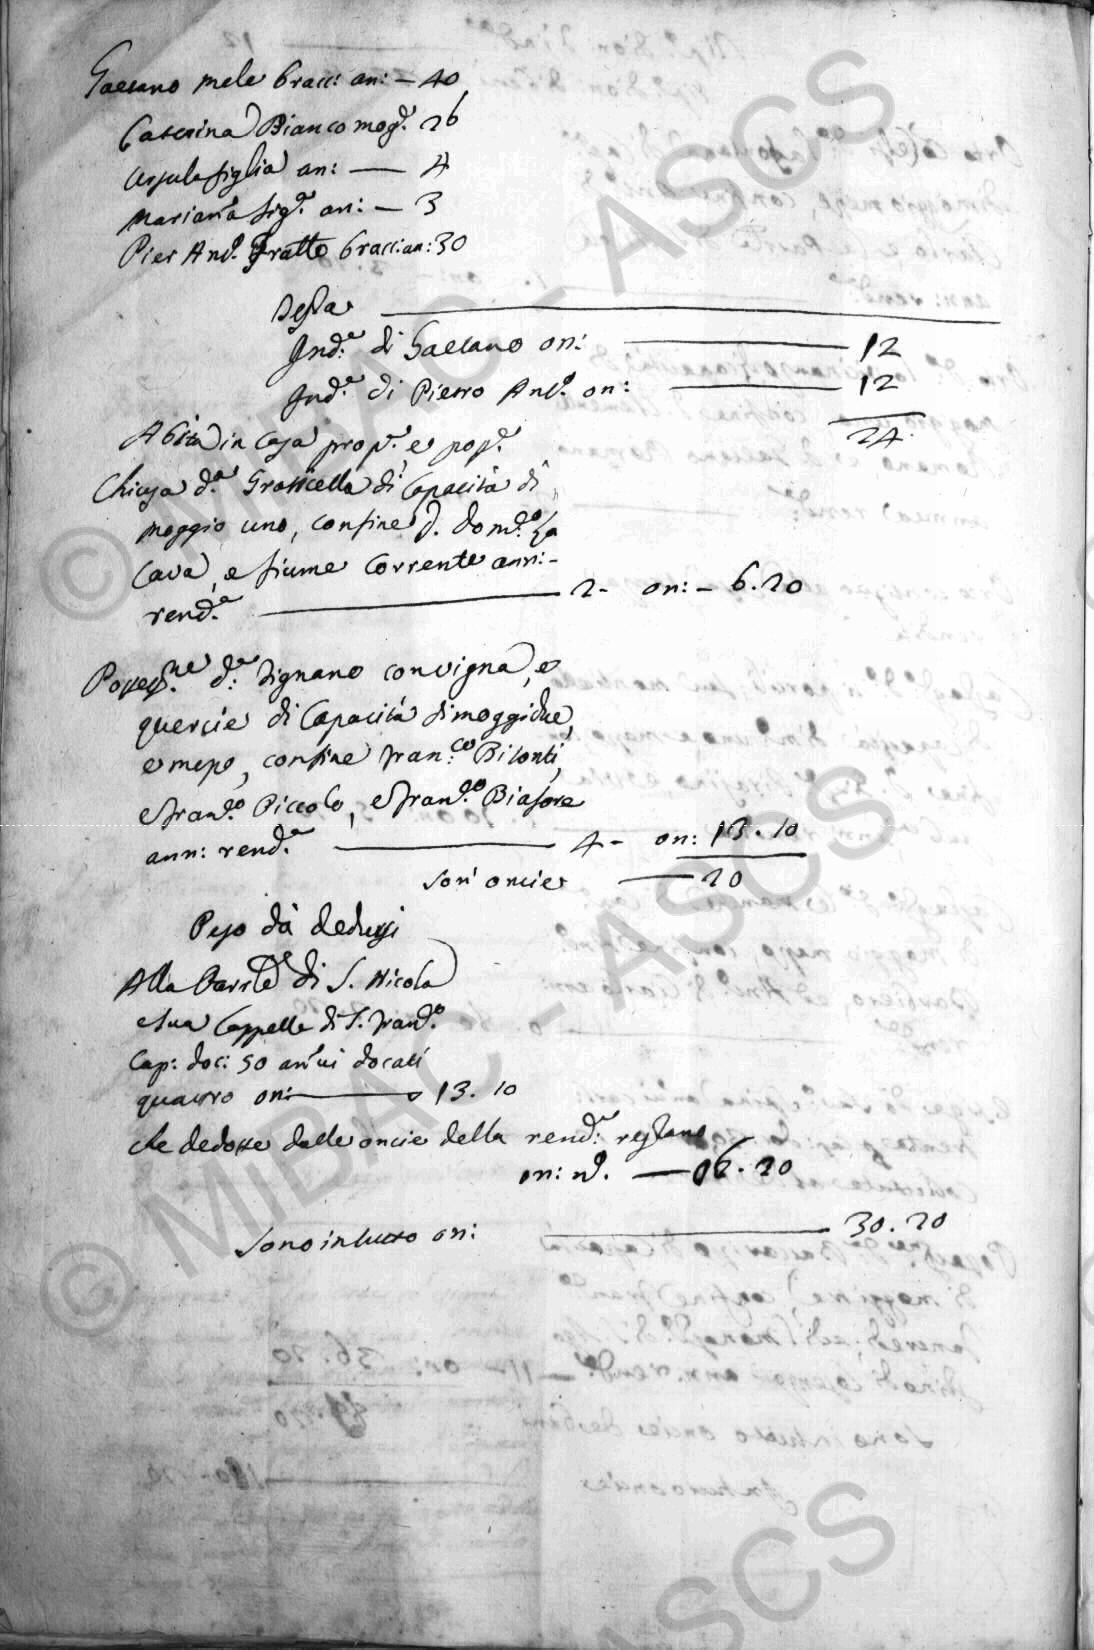 Gaetano Mele bracc: an: — 40
Caterina Bianco mog.e 26
Ursula figlia an: — 4
Mariana fig.a an: — 3
Pier And.o Fratto bracc: an: 30
Testa
Ind.a di Gaetano on: — 12
Ind.a di Pietro And.o on: — 12
24.
Abita in casa prop.a, e poss.e
Chiusa d.a Grotticella di capacità di
moggio uno, confine D. Dom.co La
Cava, e fiume corrente ann:-
rend.a — 2- on: - 6.20
Possess.ne d.a Signano con vigna, e
quercie di capacità di moggi due,
e mezo, confine Fran.co Bilonti,
e Fran.co Piccolo, e Fran.co Biafore
ann: rend.a — 4- on: 13.10
son' oncie — 20
Peso da dedursi
Alla Parr.le di S. Nicola
e sua Cappella di S. Fran.co
Cap: doc: 50 an'ui docati
quattro on: — 13.10
che dedotte dalle oncie della rend.a restano
on: n.o — 06.20
Sono in tutto on: — 30.20
© MIBAC - ASCS
© MIBAC - ASCS
ASCS